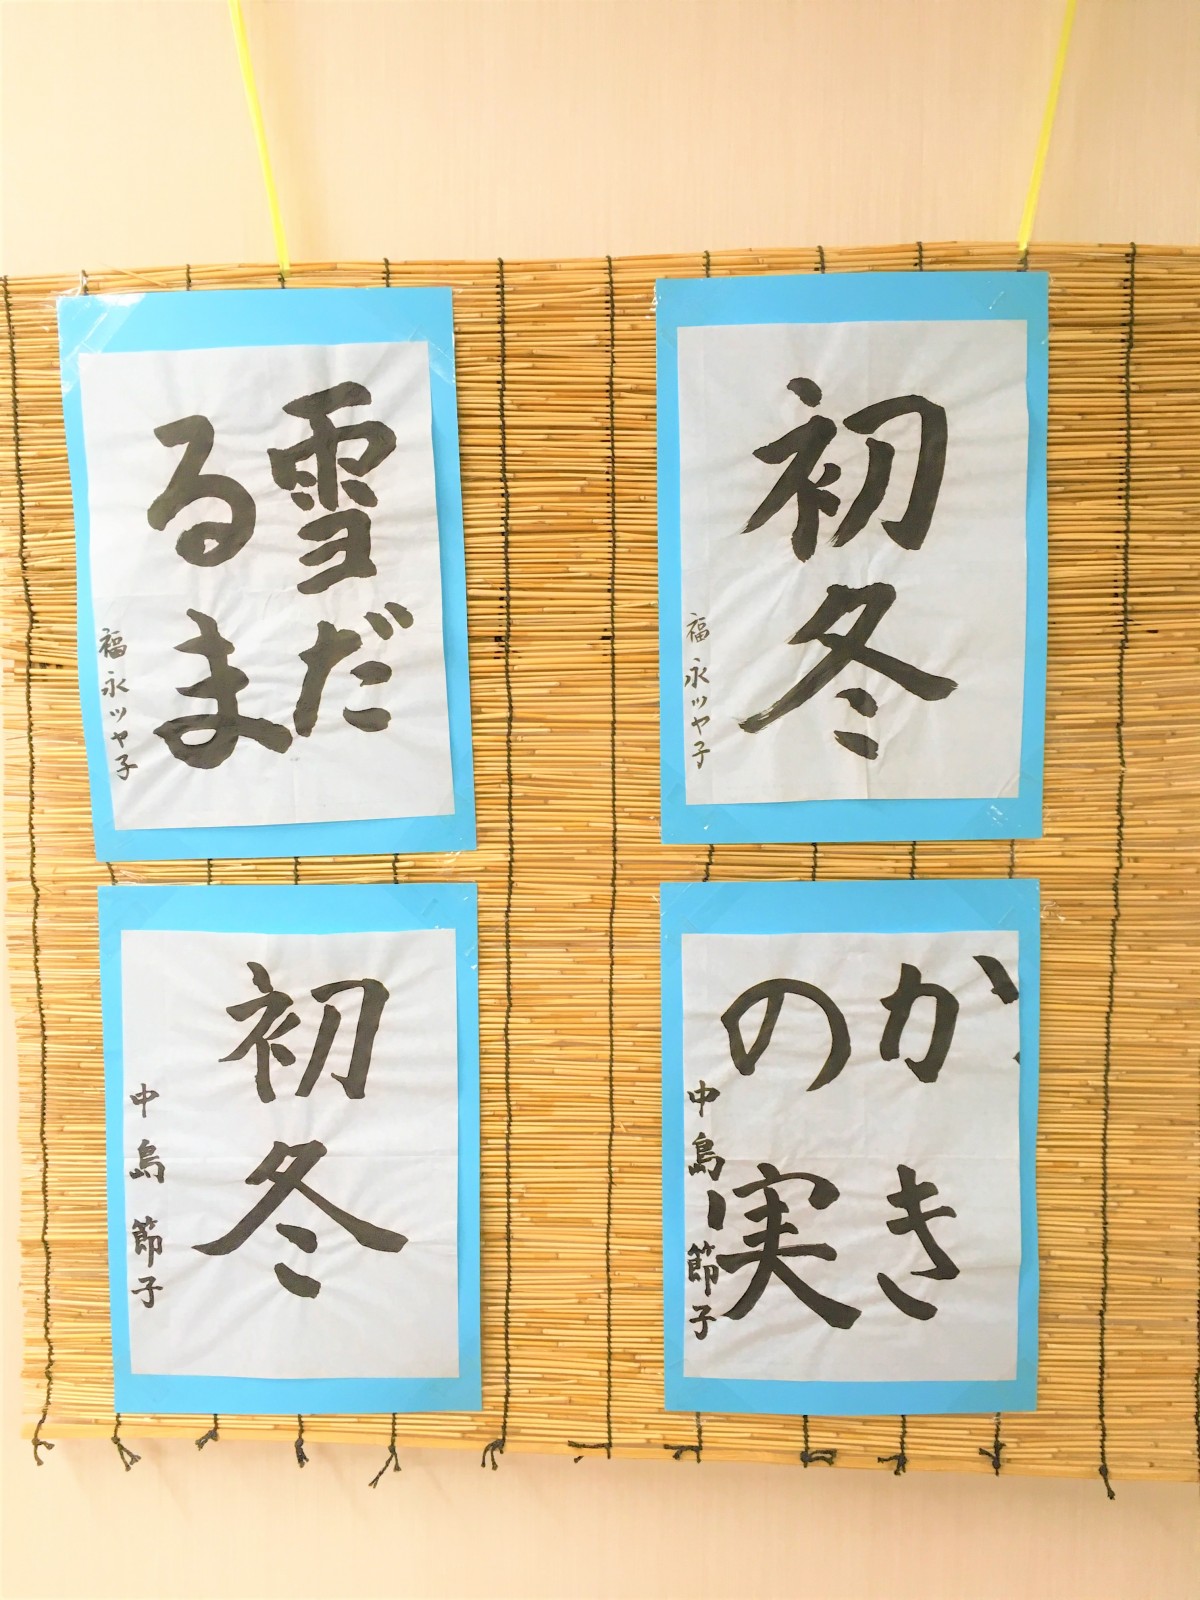 初冬
福永ツヤ子
雪だ
るま
福永ツヤ子
かき
の実
中島節子
初冬
中島節子